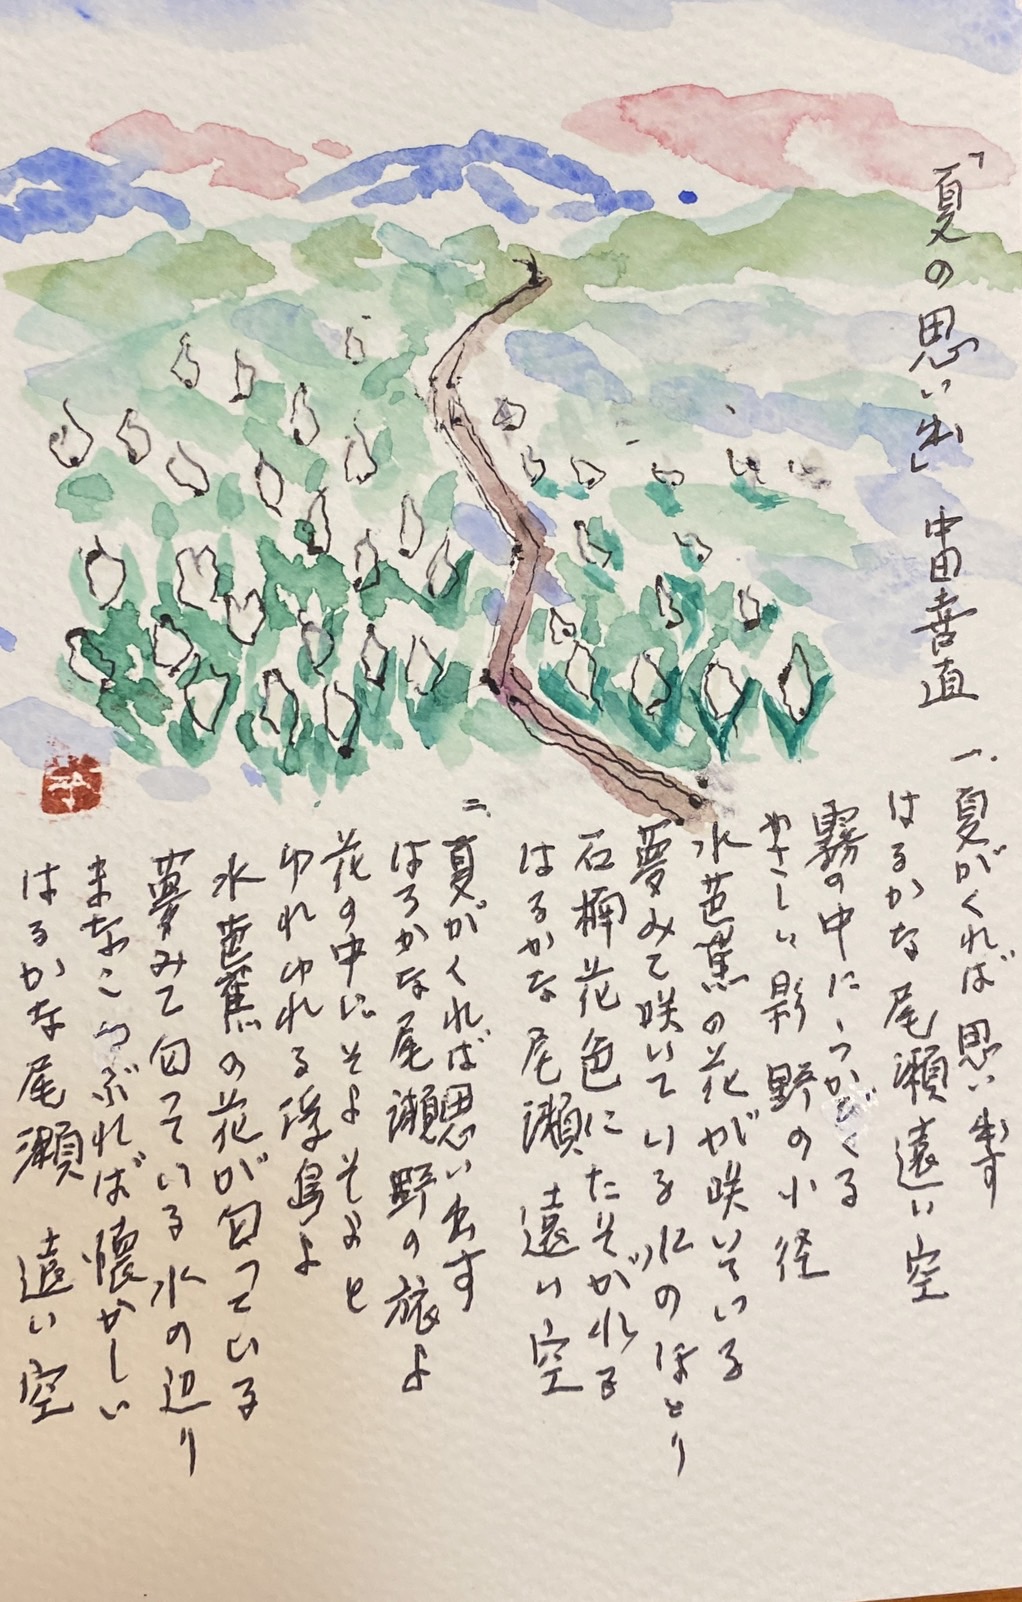 「夏の思い出」 中田喜直
一、夏がくれば 思い出す
はるかな 尾瀬 遠い空
霧の中に うかびくる
やさしい 影 野の小径
水芭蕉の花が 咲いている
夢みて咲いている 水のほとり
石楠花色に たそがれる
はるかな 尾瀬 遠い空
二、夏がくれば 思い出す
はるかな 尾瀬 野の旅よ
花の中に そよそよと
ゆれゆれる 浮島よ
水芭蕉の花が 匂っている
夢みて匂っている 水の辺り
まなこつぶれば 懐かしい
はるかな 尾瀬 遠い空